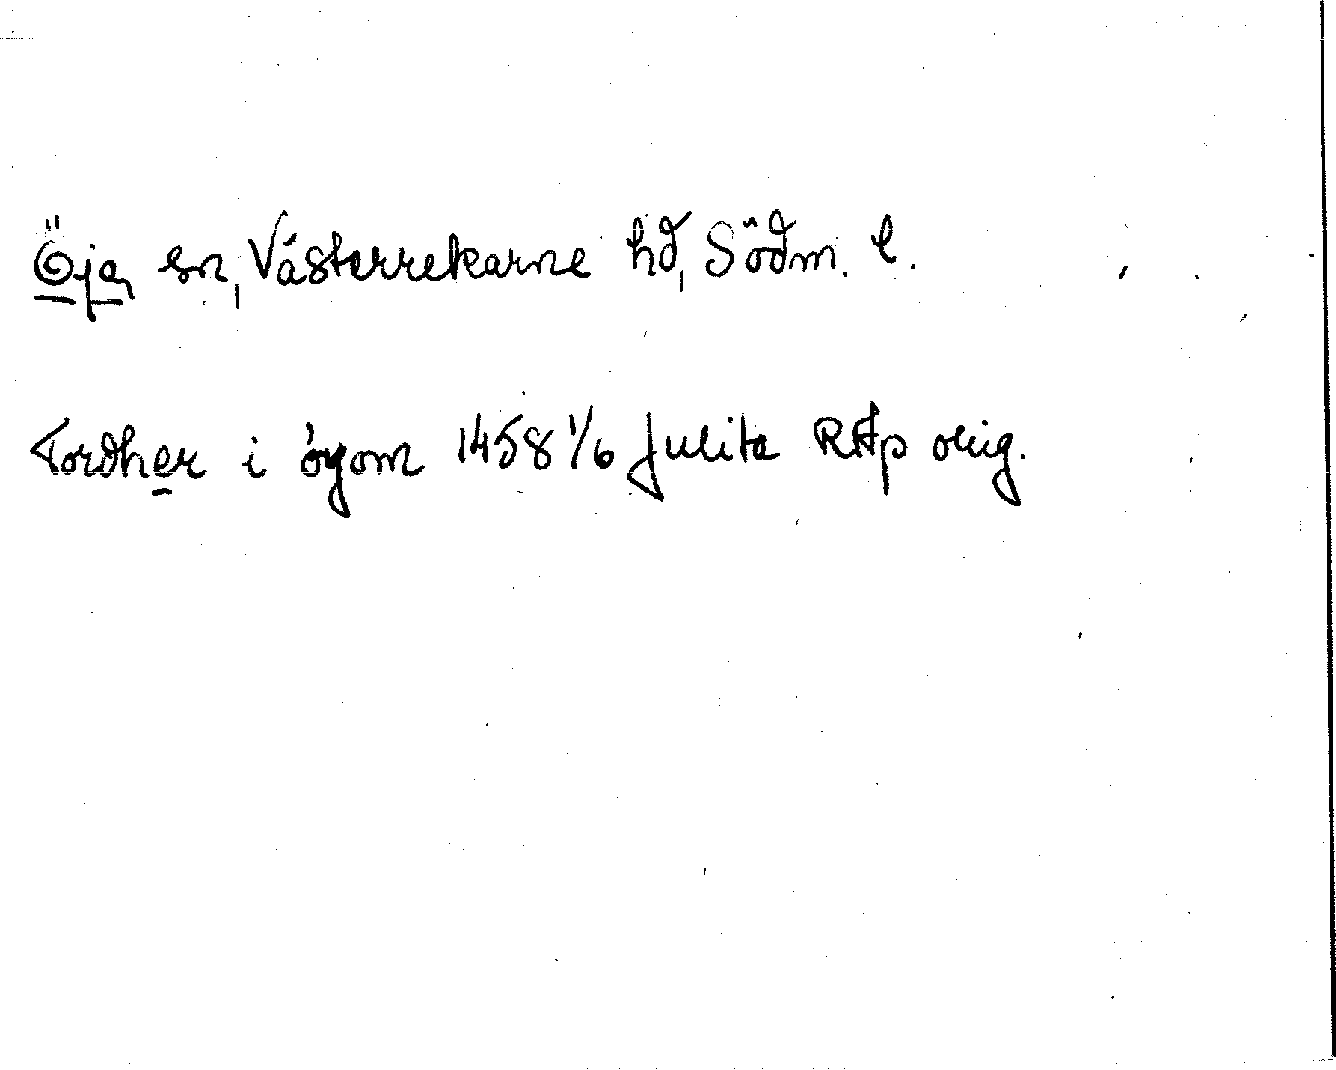 Öja sn, Västerrekarne hd, Södm. l.
Tordher i öyom 1458 1/6 Julita RAp orig.